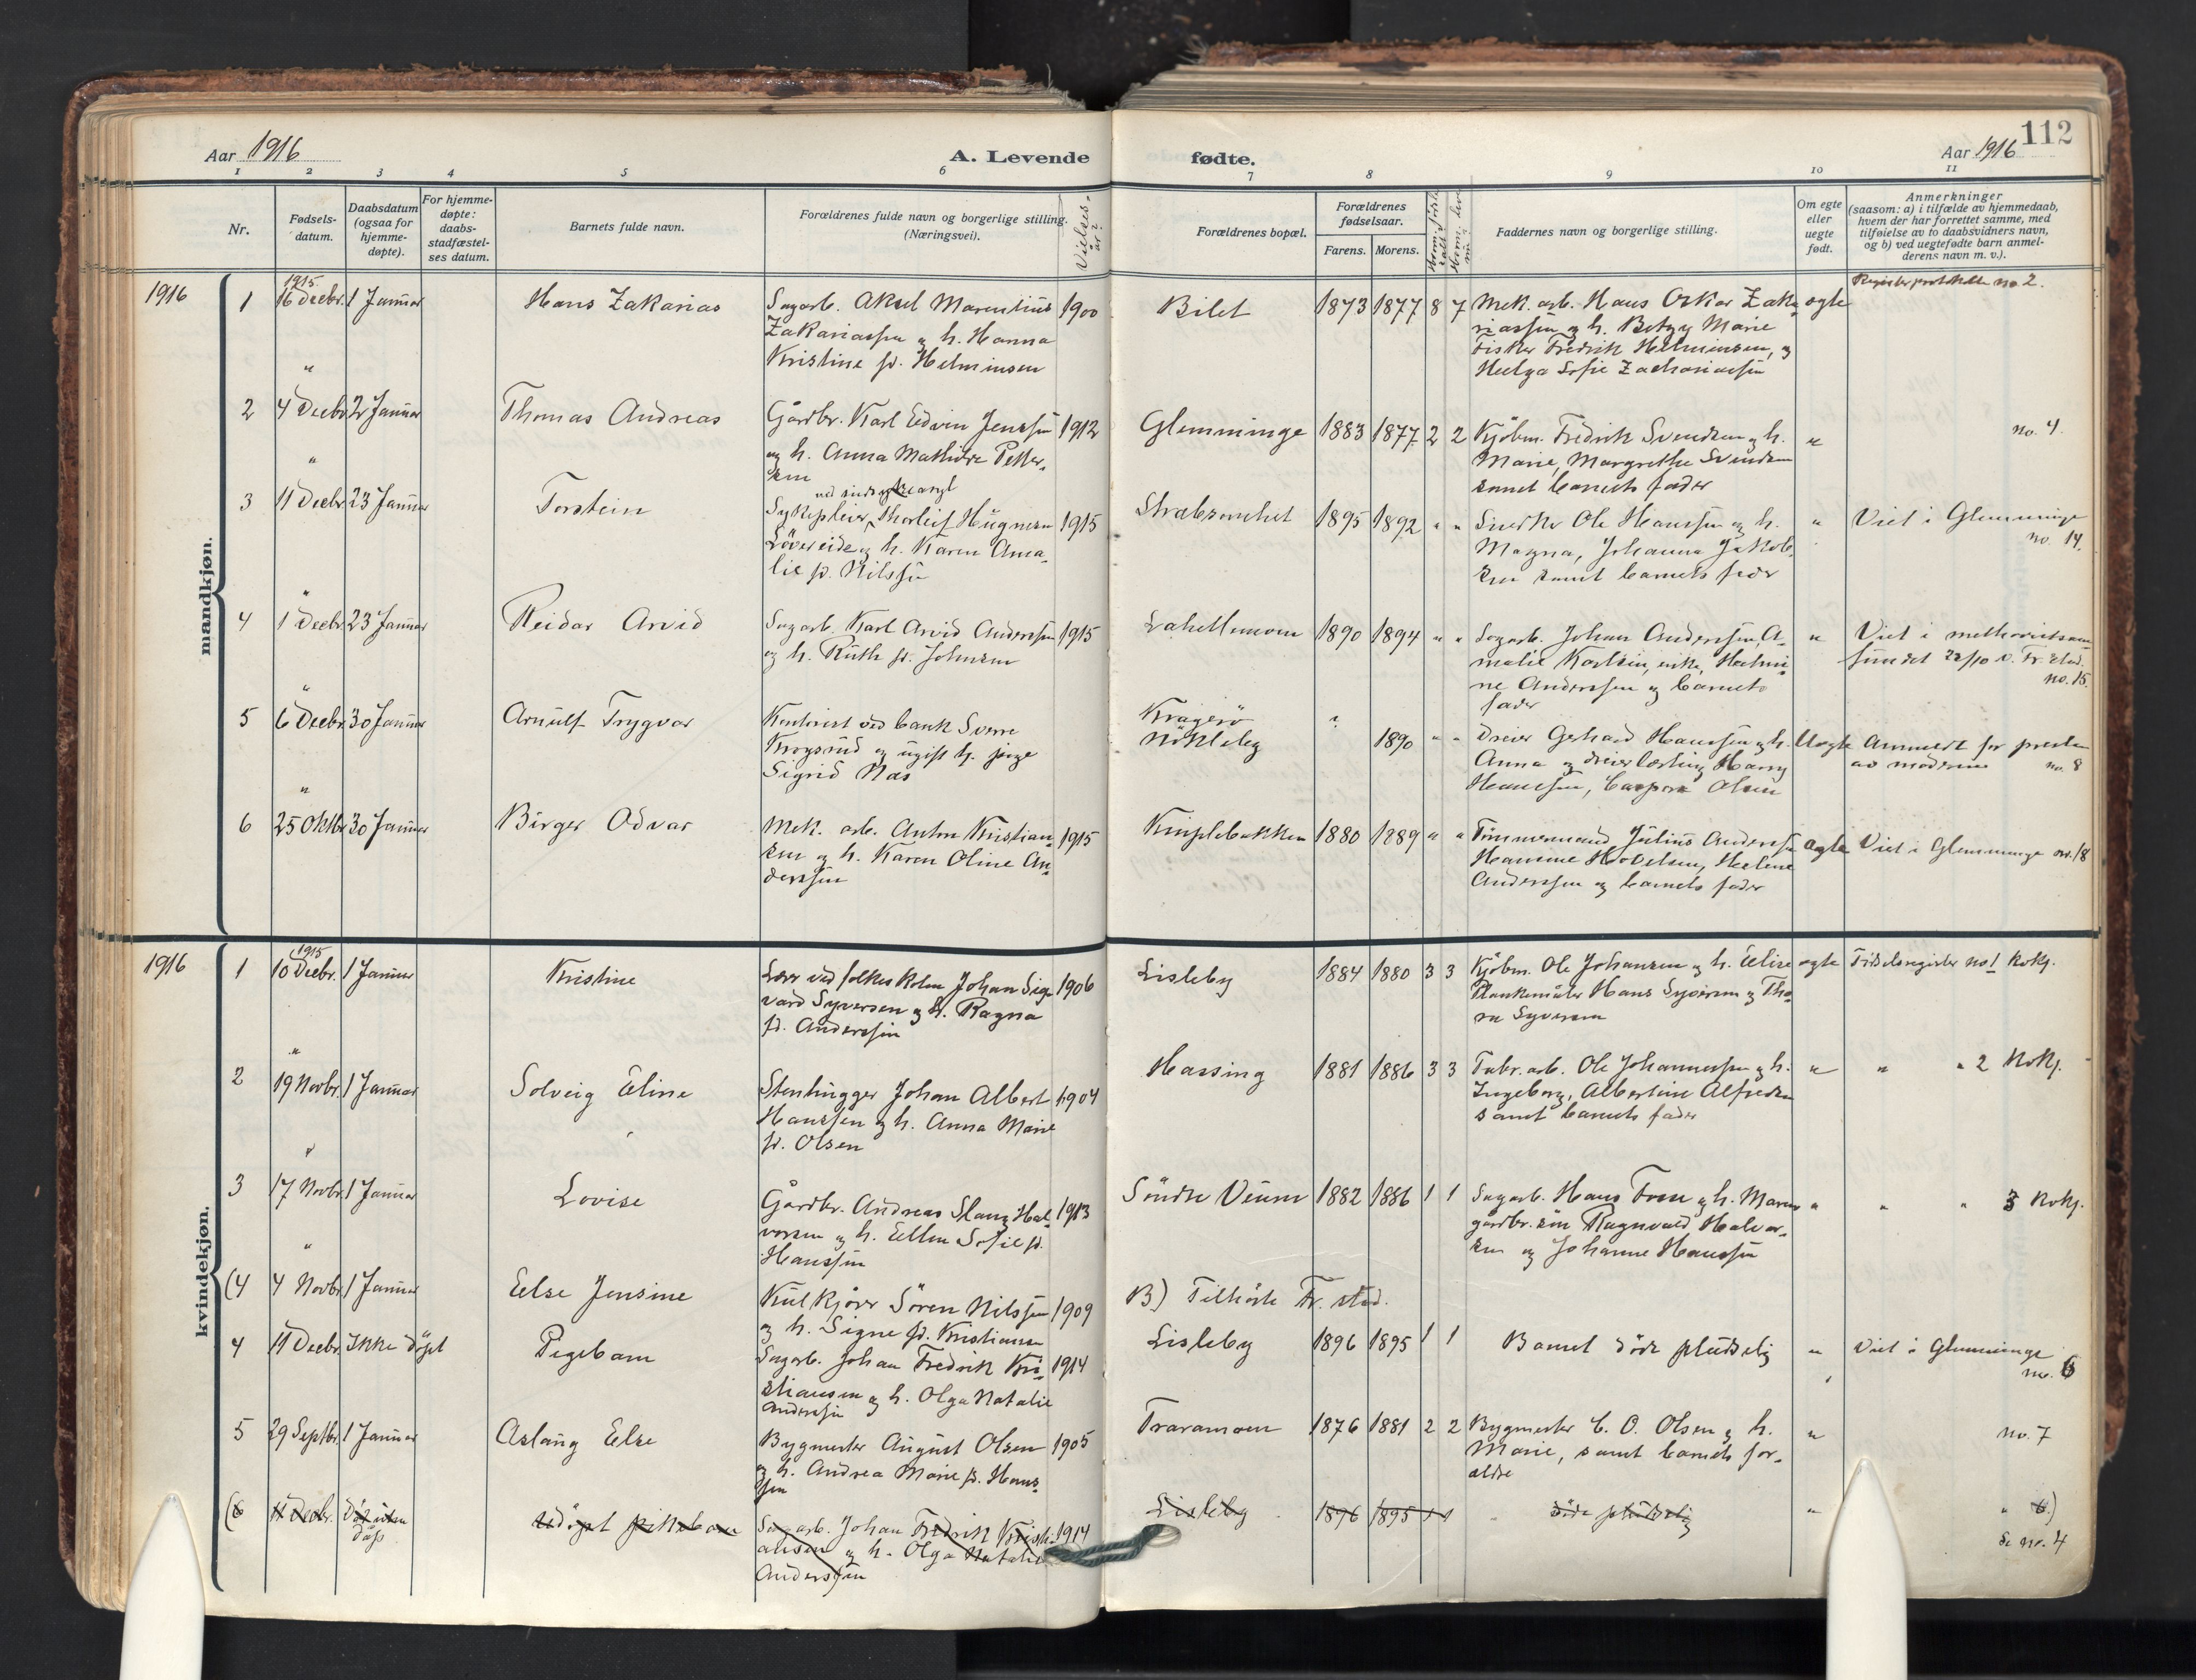 Aar 1916
A. Levende
fødte.
Aar 1916
112
1 2 3 4 5 6 7 8 9 10 11
Nr.
Fødsels-
datum.
Daabsdatum
(ogsaa for
hjemme-
døpte).
For hjemme-
døpte:
daabs-
stadfæstel-
ses datum.
Barnets fulde navn.
Forældrenes fulde navn og borgerlige stilling.
(Næringsvei).
Vielses-
år?
Forældrenes bopæl.
Forældrenes
fødselsaar.
Farens. Morens.
Faddernes navn og borgerlige stilling.
Om egte
eller
uegte
født.
Anmerkninger
(saasom: a) i tilfælde av hjemmedaab,
hvem der har forrettet samme, med
tilføielse av to daabsvidners navn,
og b) ved uegtefødte barn anmel-
derens navn m. v.).
mandkjøn.
1916
1 1915 16 Decbr. 1 Januar Hans Zakarias
Sagarb. Aksel Marentius 1900
Zakariassen og h. Hanna
Kristine f. Helminsen
Bilet 1873 1877 8 7
Mek. arb. Hans Oskar Zaka-
riassen og h. Betzy Marie
Fisker Fredrik Helminsen, og
Helga Sofie Zachariassen
egte
no 2.
2 " 4 Decbr 2 Januar Thomas Andreas
Gårdbr. Karl Edvin Jenssen 1912
og h. Anna Mathilde Petter-
sen
Glemminge 1883 1877 2 2
Kjøbm. Fredrik Svendsen og h.
Marie, Margrethe Svendsen
samt barnets fader
"
no. 4.
3 " 11 Decbr 23 Januar Torstein
ved sindssykeasyl
Sykepleier Thorleif Hugnesen 1915
Løvereide og h. Karen Ama-
lie f. Nilssen
1895 1892 " "
Snedker Ole Hanssen og h.
Magna, Johanna Jakob-
sen samt barnets fader
"
Viet i Glemminge
no. 14.
4 " 1 Decbr 23 Januar Reidar Arvid
Sagarb. Karl Arvid Anderssen 1915
og h. Ruth f. Johnsen
Lahellemoen 1890 1894 " "
Sagarb. Johan Anderssen, A-
malie Karlsen, enke, Helmi-
ne Anderssen og barnets
fader
"
Viet i methodistsam-
fundet 22/10 v. Fr.stad.
no. 15.
5 " 6 Decbr. 30 Januar Arnulf Trygvar
Kontorist ved bank Sverre
Krogsrud og ugift h. pige
Sigrid Nas
Kragerø ?
Nökleby 1890 " "
Dreier Gerhard Hanssen og h.
Anna og dreierlærling Harry
Hanssen, Caspara Olsen
Uegte
Anmeldt for presten
av moderen no. 8
6 " 25 Oktbr 30 Januar Birger Odvar
Mek. arb. Anton Kristian- 1915
sen og h. Karen Oline An-
derssen
1880 1889 " "
Tømmermand Julius Anderssen
Hansine Hovelsen, Helene
Anderssen og barnets fader
egte
Viet i Glemminge no. 18
kvindekjøn.
1916
1 1915 10 Decbr. 1 Januar Kristine
Lærer ved folkeskolen Johan Sig- 1906
vard Syversen og h. Ragna
f. Anderssen
Lisleby 1884 1880 3 3
Kjøbm. Ole Johansen og h. Elise
Plankemåler Hans Syversen og Tho-
ra Syversen
egte
Fødselsregister no 1 Rokj.
2 " 19 Novbr. 1 Januar Solveig Eline
Stenhugger Johan Albert 1904
Hanssen og h. Anna Marie
f. Olsen
Hassing 1881 1886 3 3
Fabr. arb. Ole Johannessen og h.
Ingeborg, Albertine Alfredsen
samt barnets fader
" " " 2 Rokj.
3 " 17 Novbr. 1 Januar Lovise
Gårdbr. Andreas Slang Hal- 1913
vorsen og h. Ellen Sofie f.
Hanssen
Söndre Veum 1882 1886 1 1
Sagarb. Hans Foss og h. Maren
gårdbr. søn Ragnvald Halvor-
sen og Johanne Hanssen
" " " 3 Rokj.
(4 " 4 Novbr. 1 Januar Else Jensine
Kulkjører Sören Nilssen 1909
og h. Signe f. Kristiansen
B) Tilhörte Fr. stad.
4 11 Decbr. Ikke döpt Pigebarn
Sagarb. Johan Fredrik Kri- 1914
stiansen og h. Olga Natalie
Anderssen
Lisleby 1896 1895 1 1
Barnet döde pludselig
"
Viet i Glemminge
no. 6
5 29 Septbr. 1 Januar Aslaug Else
Bygmester August Olsen 1905
og h. Andrea Marie f. Hans-
sen
Traramoen 1876 1881 2 2
Bygmester C. O. Olsen og h.
Marie, samt barnets for-
ældre
"
no. 7
(6 11 Decbr. Död uten
dåp
Udöpt pikebarn
Sagarb. Johan Fredrik Kristi- 1914
ansen og h. Olga Natalie
Anderssen
Lisleby 1896 1895 1 1
döde pludselig
" " 6)
Se no. 4